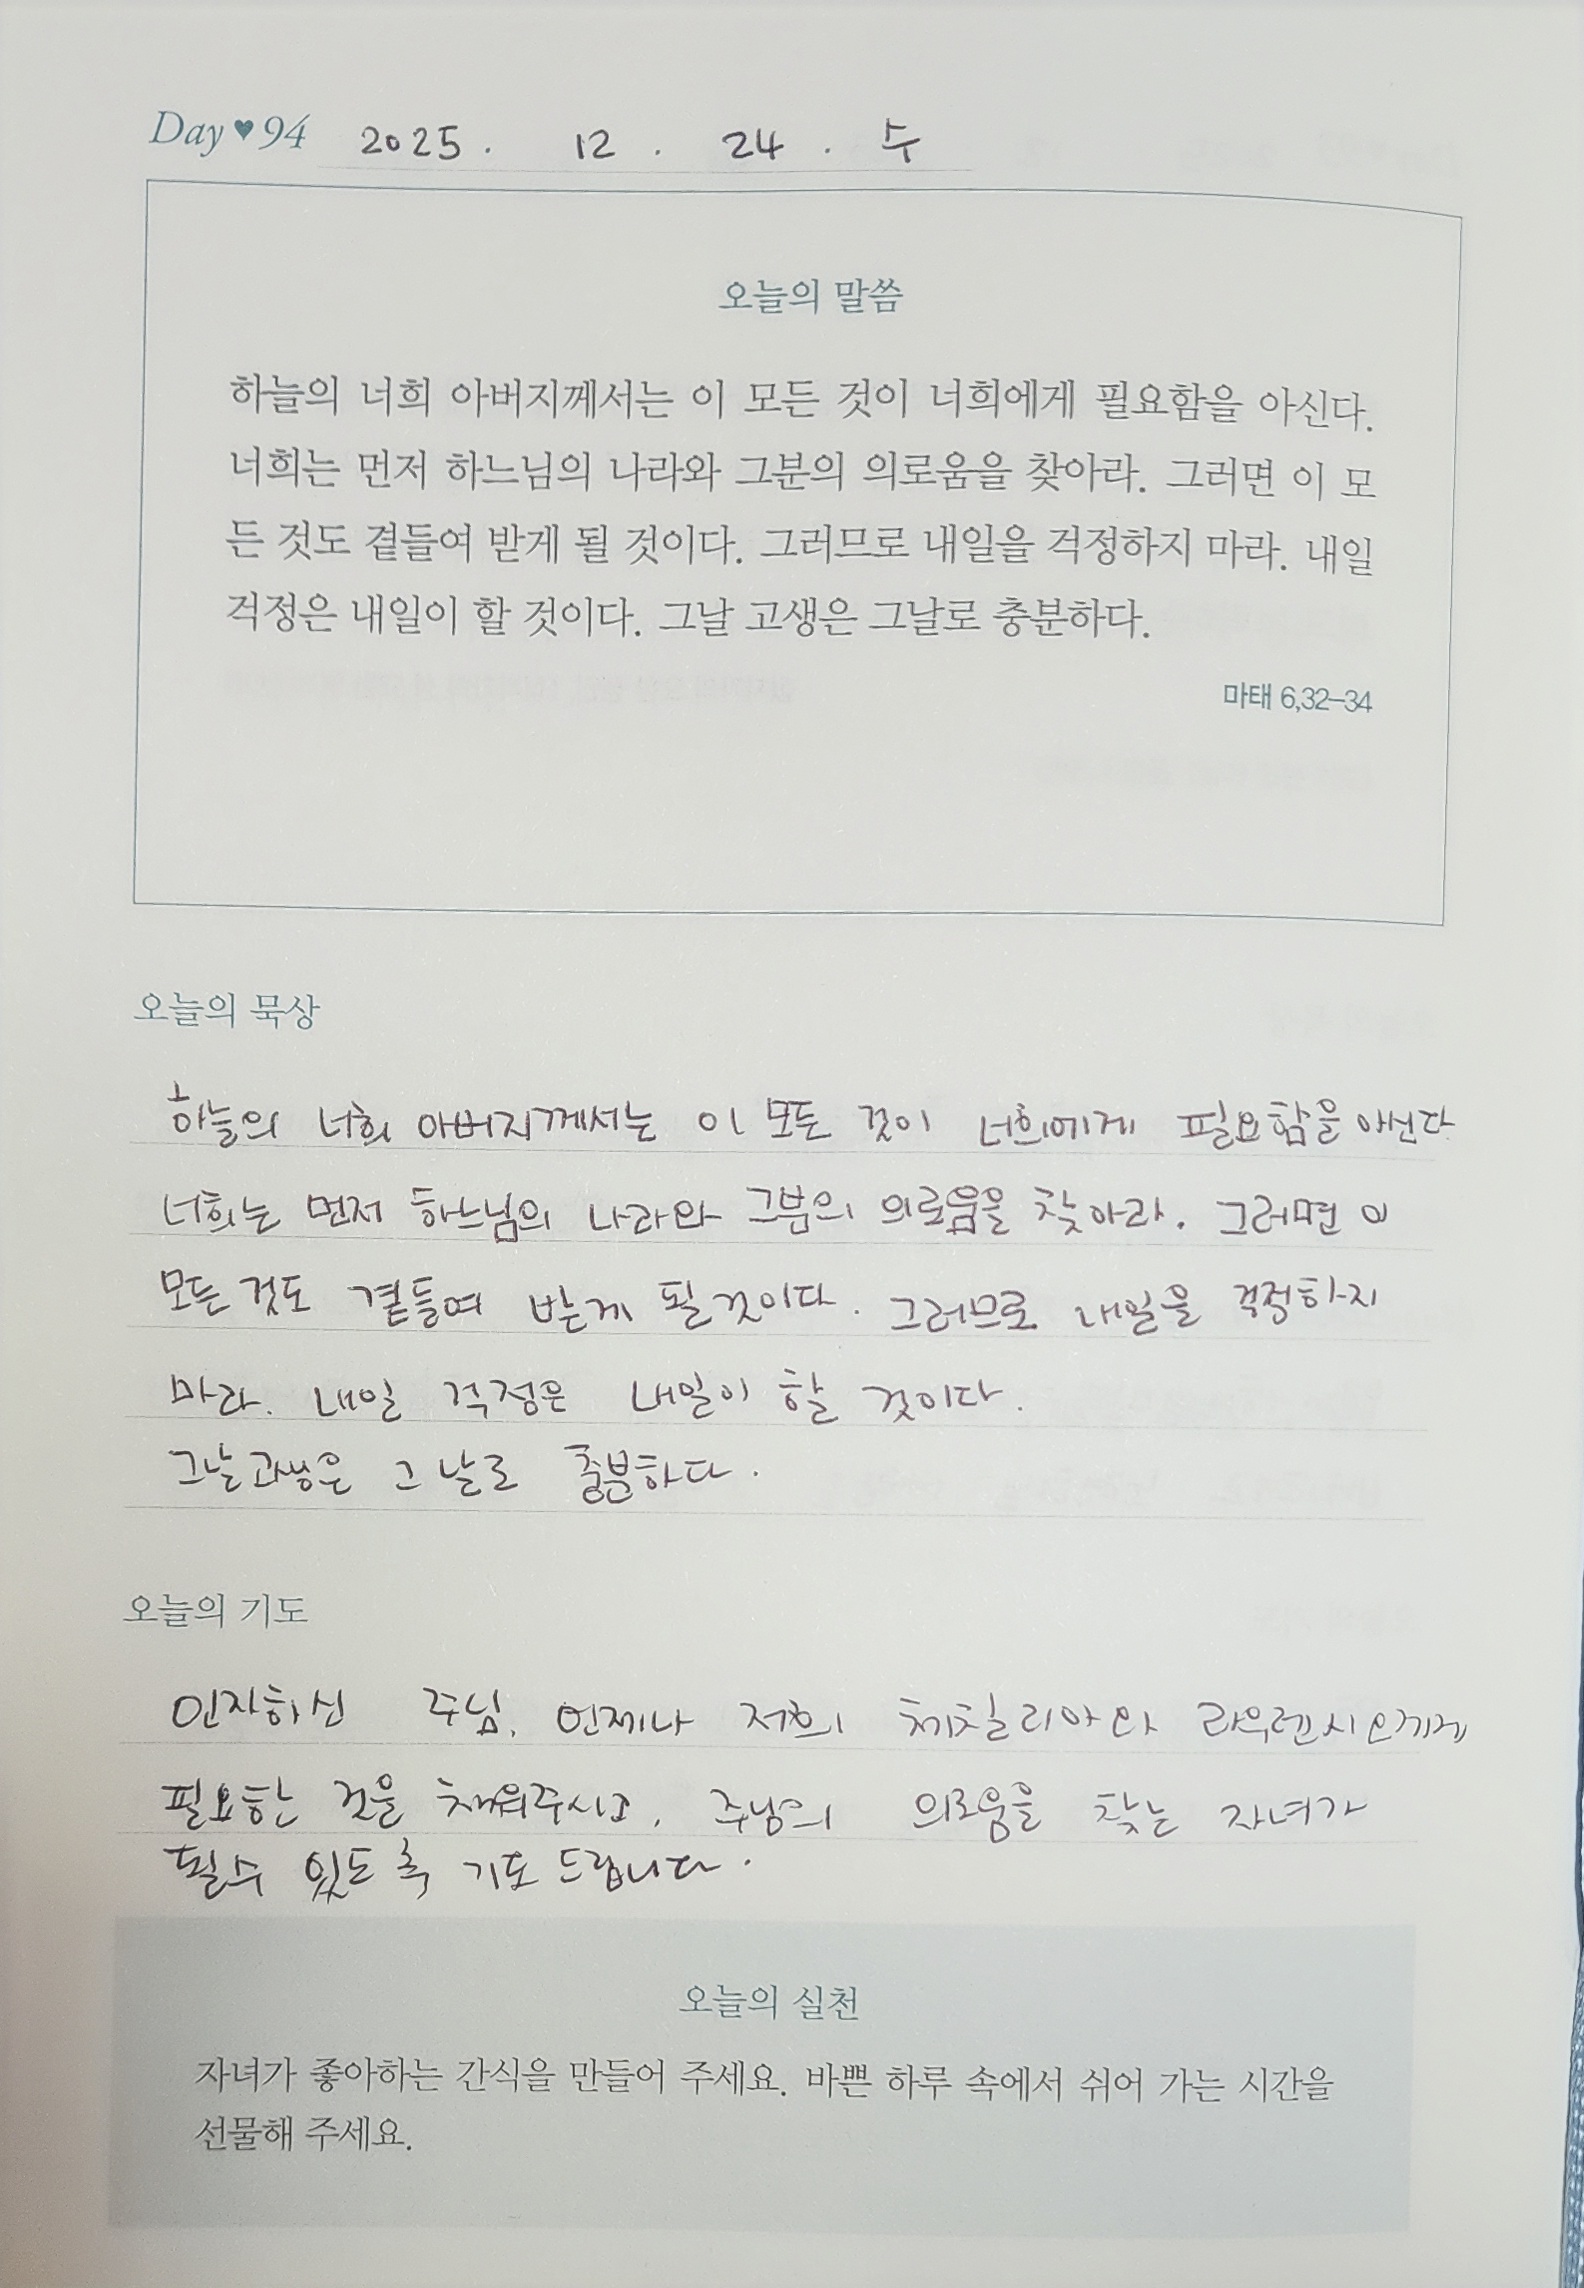 Day ♥ 94 2025. 12. 24. 수
오늘의 말씀
하늘의 너희 아버지께서는 이 모든 것이 너희에게 필요함을 아신다.
너희는 먼저 하느님의 나라와 그분의 의로움을 찾아라. 그러면 이 모
든 것도 곁들여 받게 될 것이다. 그러므로 내일을 걱정하지 마라. 내일
걱정은 내일이 할 것이다. 그날 고생은 그날로 충분하다.
마태 6,32–34
오늘의 묵상
하늘의 너희 아버지께서는 이 모든 것이 너희에게 필요함을 아신다
너희는 먼저 하느님의 나라와 그분의 의로움을 찾아라. 그러면 이
모든 것도 곁들여 받게 될 것이다. 그러므로 내일을 걱정하지
마라. 내일 걱정은 내일이 할 것이다.
그날 고생은 그 날로 충분하다.
오늘의 기도
인자하신 주님, 언제나 저희 체칠리아와 라우렌시오에게
필요한 것을 채워주시고, 주님의 의로움을 찾는 자녀가
될수 있도록 기도 드립니다.
오늘의 실천
자녀가 좋아하는 간식을 만들어 주세요. 바쁜 하루 속에서 쉬어 가는 시간을
선물해 주세요.